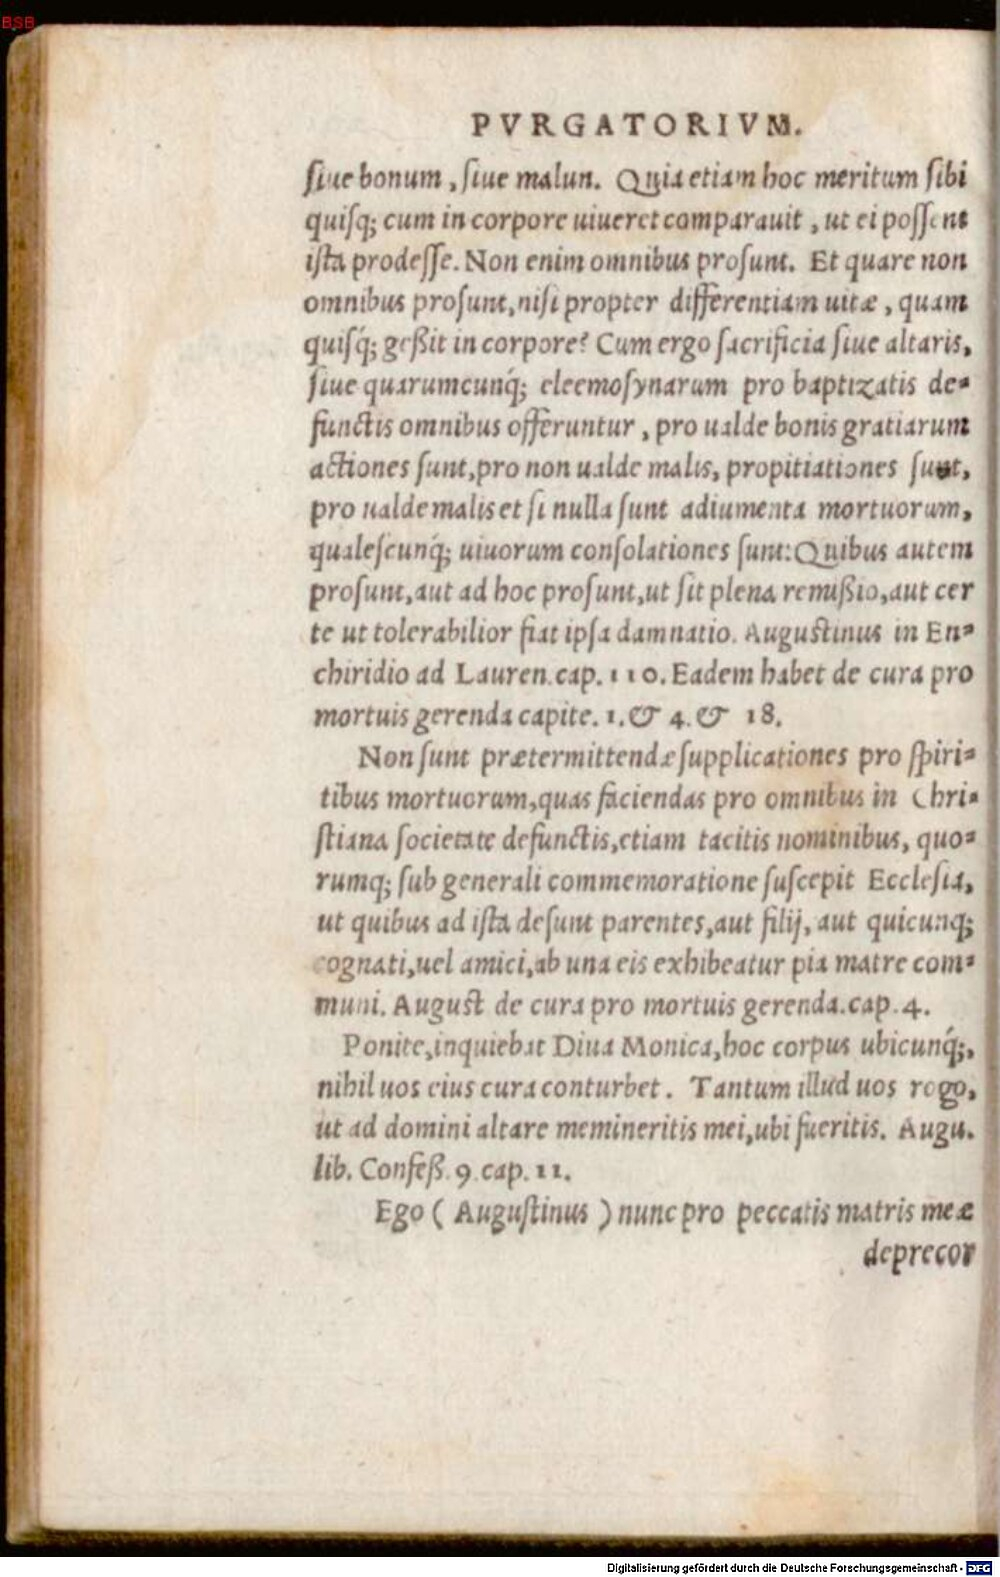 BSB
PVRGATORIVM.
siue bonum, siue malun. Quia etiam hoc meritum sibi
quisq; cum in corpore uiueret comparauit, ut ei possent
ista prodesse. Non enim omnibus prosunt. Et quare non
omnibus prosunt, nisi propter differentiam uitæ, quam
quisq́; geßit in corpore? Cum ergo sacrificia siue altaris,
siue quarumcunq́; eleemosynarum pro baptizatis de-
functis omnibus offeruntur, pro ualde bonis gratiarum
actiones sunt, pro non ualde malis, propitiationes sunt,
pro ualde malis et si nulla sunt adiumenta mortuorum,
qualescunq́; uiuorum consolationes sunt: Quibus autem
prosunt, aut ad hoc prosunt, ut sit plena remißio, aut cer
te ut tolerabilior fiat ipsa damnatio. Augustinus in En-
chiridio ad Lauren. cap. 110. Eadem habet de cura pro
mortuis gerenda capite. 1. & 4. & 18.
Non sunt prætermittendæ supplicationes pro spiri-
tibus mortuorum, quas faciendas pro omnibus in Chri-
stiana societate defunctis, etiam tacitis nominibus, quo-
rumq; sub generali commemoratione suscepit Ecclesia,
ut quibus ad ista desunt parentes, aut filij, aut quicunq;
cognati, uel amici, ab una eis exhibeatur pia matre com-
muni. August de cura pro mortuis gerenda. cap. 4.
Ponite, inquiebat Diua Monica, hoc corpus ubicunq́;,
nihil uos eius cura conturbet. Tantum illud uos rogo,
ut ad domini altare memineritis mei, ubi fueritis. Augu.
lib. Confeß. 9. cap. 11.
Ego ( Augustinus ) nunc pro peccatis matris meæ
deprecor
Digitalisierung gefördert durch die Deutsche Forschungsgemeinschaft - DFG